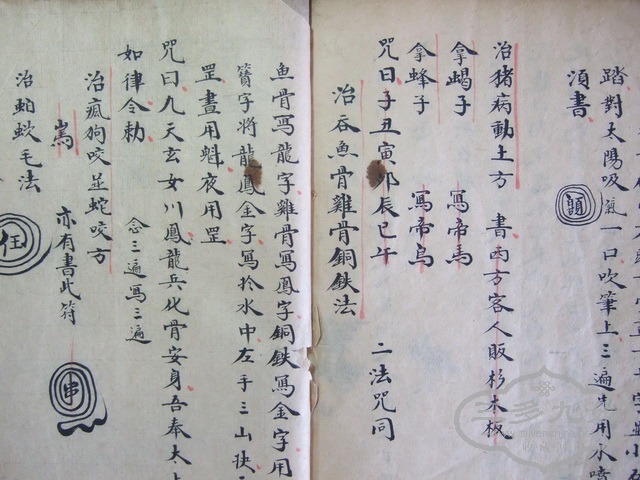 踏對太陽吸氣一口吹筆上三遍先用水噴
須書
治猪病動土方 書西方客人販杉木板
拿蝎子 寫帝馬
拿蜂子 寫帝鳥
咒曰子丑寅卯辰巳午 二法咒同
治吞魚骨雞骨銅鉄法
魚骨寫龍字雞骨寫鳳字銅鉄寫金字用
寳字將龍鳳金字寫於水中左手三山抉
罡晝用魁夜用罡
咒曰九天玄女川鳳龍兵化骨安身吾奉太上
如律令勅 念三遍寫三遍
治瘋狗咬並蛇咬方
嵩 亦有書此符
串
治蚰蚥毛法
任